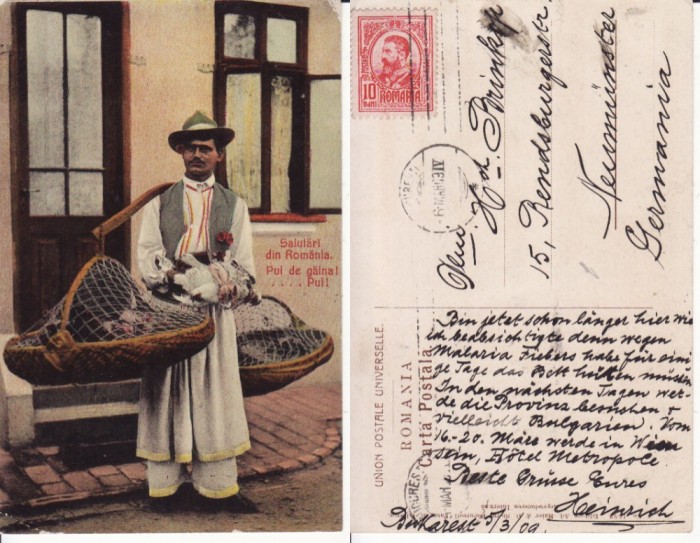 Salutări
din România.
Pui de găina!
.... Pui!
10
BANI
ROMANIA
Brinkop
15, Rendsburgerstr.
Neumünster
Germania
UNION POSTALE UNIVERSELLE.
ROMANIA
Carta Postala
Bin jetzt schon länger hier wie
ich beabsichtigte denn wegen
Malaria Fiebers habe für eini
ge Tage das Bett hüten müssen
In den nächsten Tagen wer-
de die Provinz besuchen +
vielleicht Bulgarien. Vom
16.-20. März werde in
sein, Hôtel Metropole
Beste Grüsse Eures
Heinrich
Bukarest 5/3/09